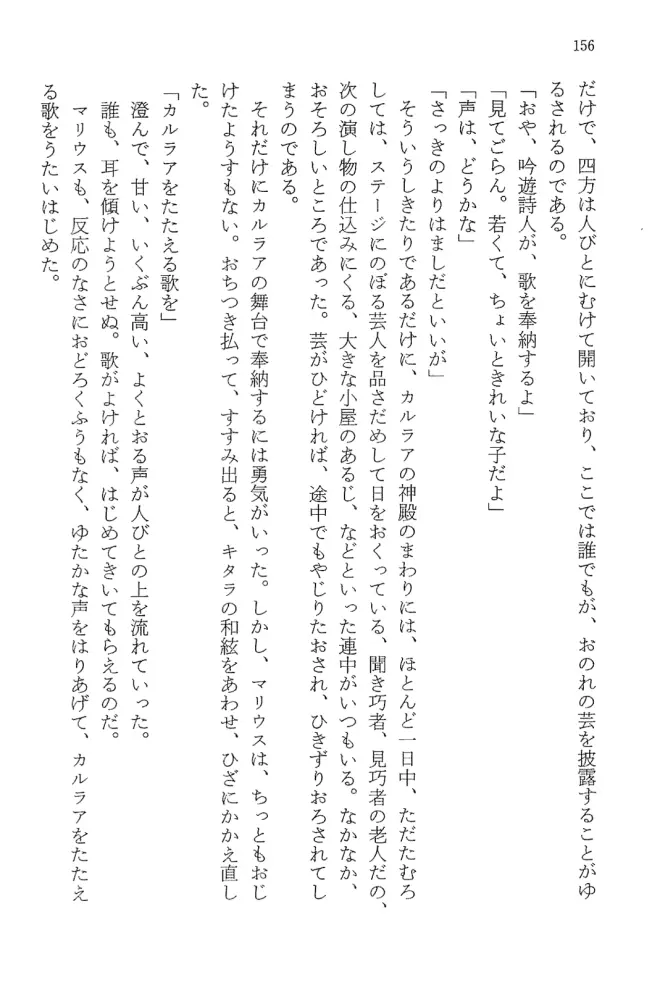 156
だけで、四方は人びとにむけて開いており、ここでは誰でもが、おのれの芸を披露することがゆ
るされるのである。
「おや、吟遊詩人が、歌を奉納するよ」
「見てごらん。若くて、ちょいときれいな子だよ」
「声は、どうかな」
「さっきのよりはましだといいが」
そういうしきたりであるだけに、カルラアの神殿のまわりには、ほとんど一日中、ただたむろ
しては、ステージにのぼる芸人を品さだめして日をおくっている、聞き巧者、見巧者の老人だの、
次の演し物の仕込みにくる、大きな小屋のあるじ、などといった連中がいつもいる。なかなか、
おそろしいところであった。芸がひどければ、途中でもやじりたおされ、ひきずりおろされてし
まうのである。
それだけにカルラアの舞台で奉納するには勇気がいった。しかし、マリウスは、ちっともおじ
けたようすもない。おちつき払って、すすみ出ると、キタラの和絃をあわせ、ひざにかかえ直し
た。
「カルラアをたたえる歌を」
澄んで、甘い、いくぶん高い、よくとおる声が人びとの上を流れていった。
誰も、耳を傾けようとせぬ。歌がよければ、はじめてきいてもらえるのだ。
マリウスも、反応のなさにおどろくふうもなく、ゆたかな声をはりあげて、カルラアをたたえ
る歌をうたいはじめた。